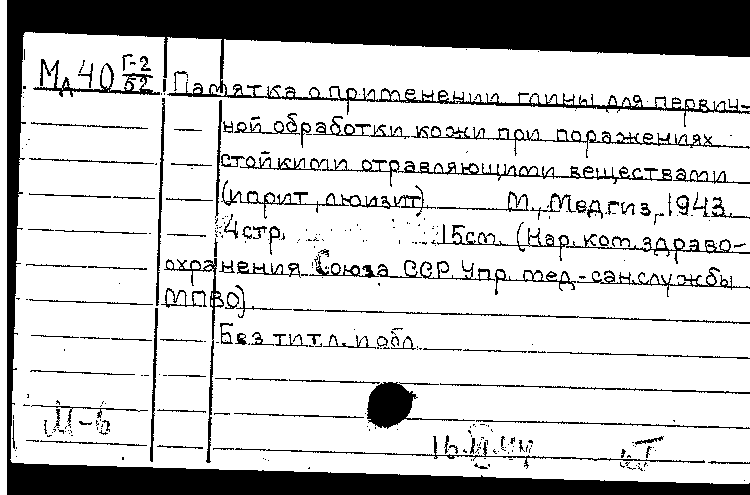 Мд 40 Г-2/52 Памятка о применении глины для первич-
ной обработки кожи при поражениях
стойкими отравляющими веществами
(иприт, люизит) М., Медгиз, 1943.
4 стр. 15 см. (Нар. ком. здраво-
охранения Союза ССР. Упр. мед.-сан. службы
МПВО).
Без тит. л. и обл.
М-в